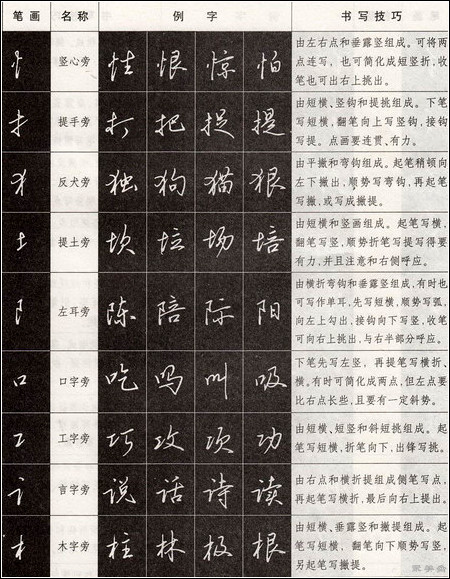 笔画 名称 例字 书写技巧
忄 竖心旁 怯 恨 惊 怕
由左右点和垂露竖组成。可将两
点连写，也可简化成短竖折，收
笔也可出右上挑出。
扌 提手旁 打 把 捉 提
由短横、竖钩和提挑组成。下笔
写短横，翻笔向上写竖钩，接钩
写提。点画要连贯、有力。
犭 反犬旁 独 狗 猫 狠
由平撇和弯钩组成。起笔稍顿向
左下撇出，顺势写弯钩，再起笔
写撇，或写成撇提。
土 提土旁 坎 垃 场 培
由短横和竖画组成。起笔写横，
翻笔写竖，顺势折笔写提写得要
有力，并且注意和右侧呼应。
阝 左耳旁 陈 陪 际 阳
由横折弯钩和垂露竖组成，有时也
可写作单耳，先写短横，顺势写弧，
向左上勾出，接钩向下写竖，收笔
可向右上挑出，与右半部分呼应。
口 口字旁 吃 吗 叫 吸
下笔先写左竖，再提笔写横折、
横。有时可简化成两点，但左点要
比右点长些，且要有一定斜势。
工 工字旁 巧 攻 项 功
由短横、短竖和斜短挑组成。起
笔写短横，折笔向下，出锋写挑。
讠 言字旁 说 话 诗 读
由右点和横折提组成侧笔写点，
再起笔写横折，最后向右上提出。
木 木字旁 柱 林 极 根
由短横、垂露竖和撇提组成。起
笔写短横，翻笔向下顺势写竖，
另起笔写撇提。